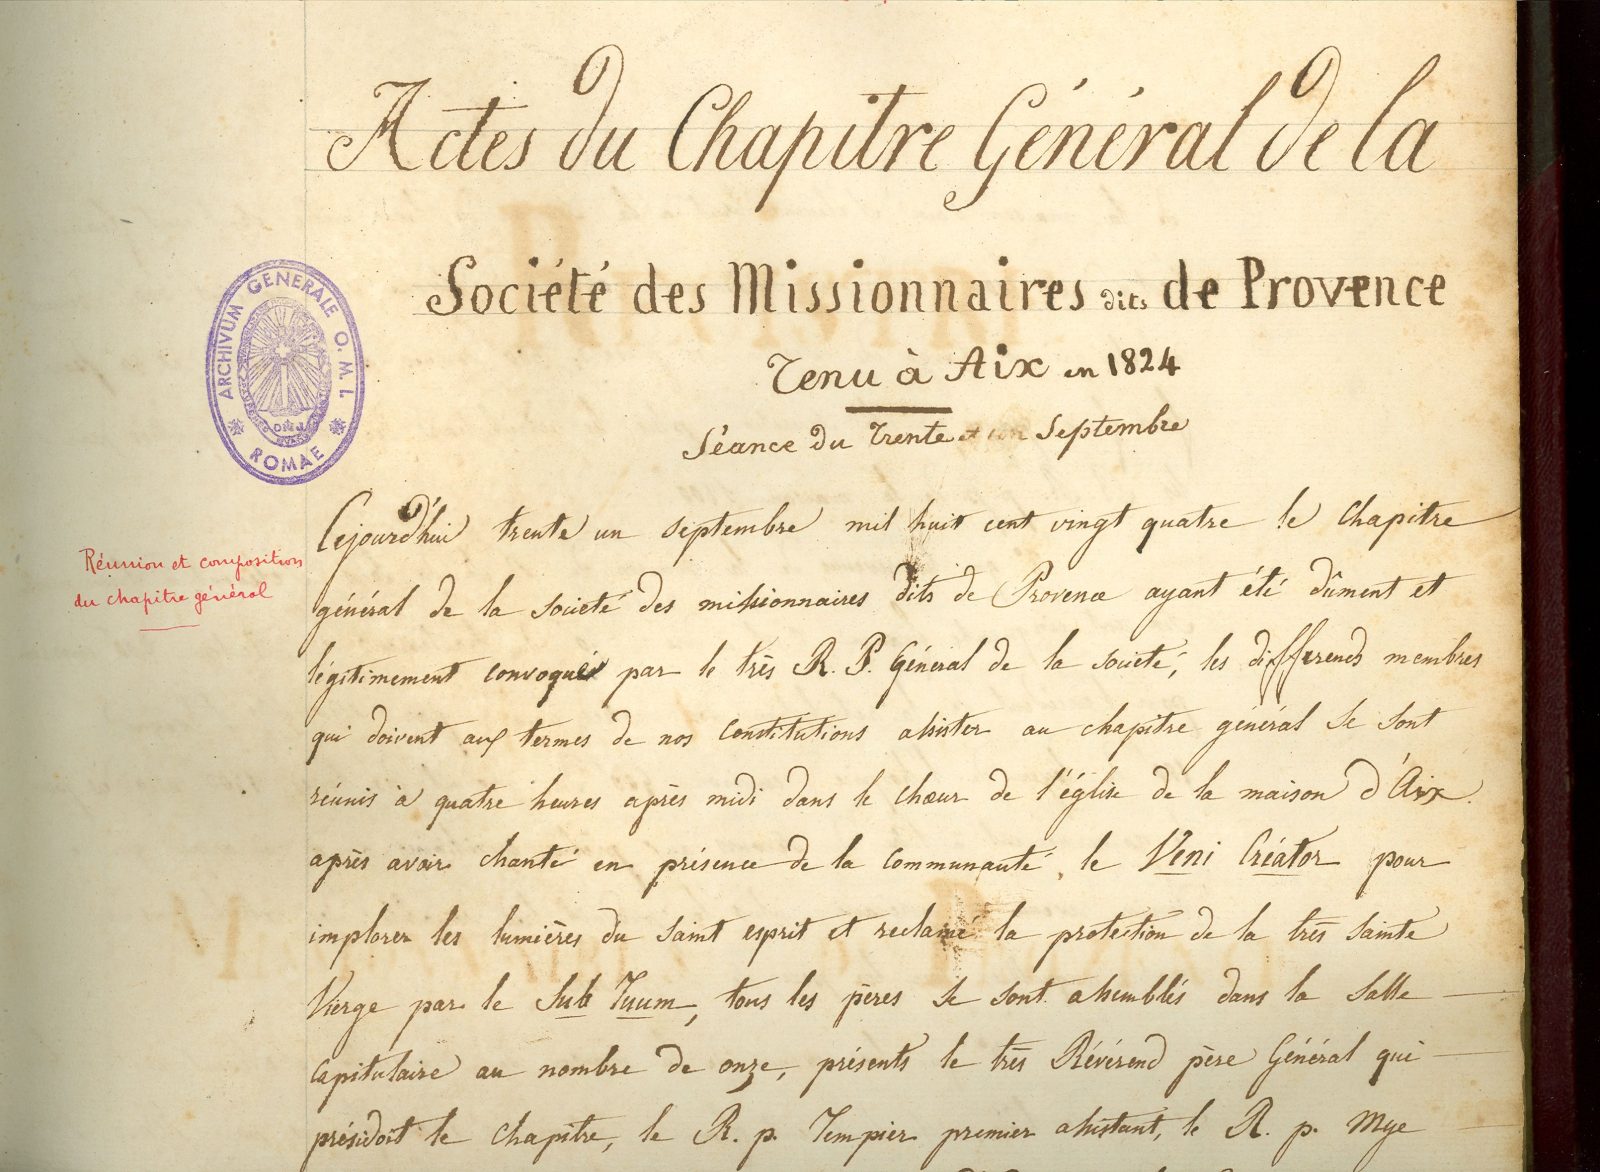 Actes du Chapitre Général de la
Société des Missionnaires dits de Provence
Tenu à Aix en 1824
Séance du Trente et un Septembre
ARCHIVUM GENERALE O. M. I.
ROMAE
Réunion et composition
du chapitre général
Cejourd'hui trente un septembre mil huit cent vingt quatre le Chapitre
général de la société des missionnaires dits de Provence ayant été dûment et
légitimement convoqué par le très R. P. Général de la société, les differends membres
qui doivent aux termes de nos constitutions assister au chapitre général se sont
réunis à quatre heures après midi dans le chœur de l'église de la maison d'Aix.
après avoir chanté en présence de la communauté, le Veni Créator pour
implorer les lumières du saint esprit et reclamé la protection de la très sainte
Vierge par le Sub Tuum, tous les pères se sont assemblés dans la salle
capitulaire au nombre de onze, présents le très Révérend père Général qui
présidoit le chapitre, le R. p. Tempier premier assistant, le R. p. Mye